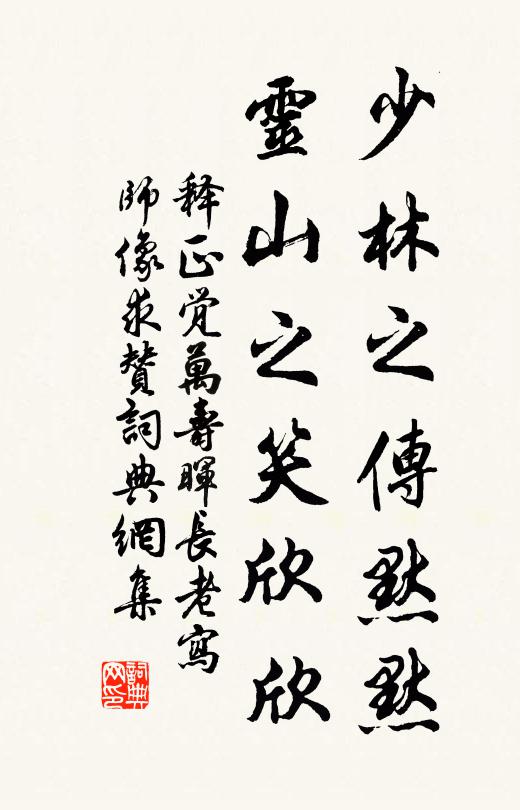 少林之傳默默
靈山之笑欣欣
释正觉萬壽暉長老寫
師像求贊詞典網集
詞典网印